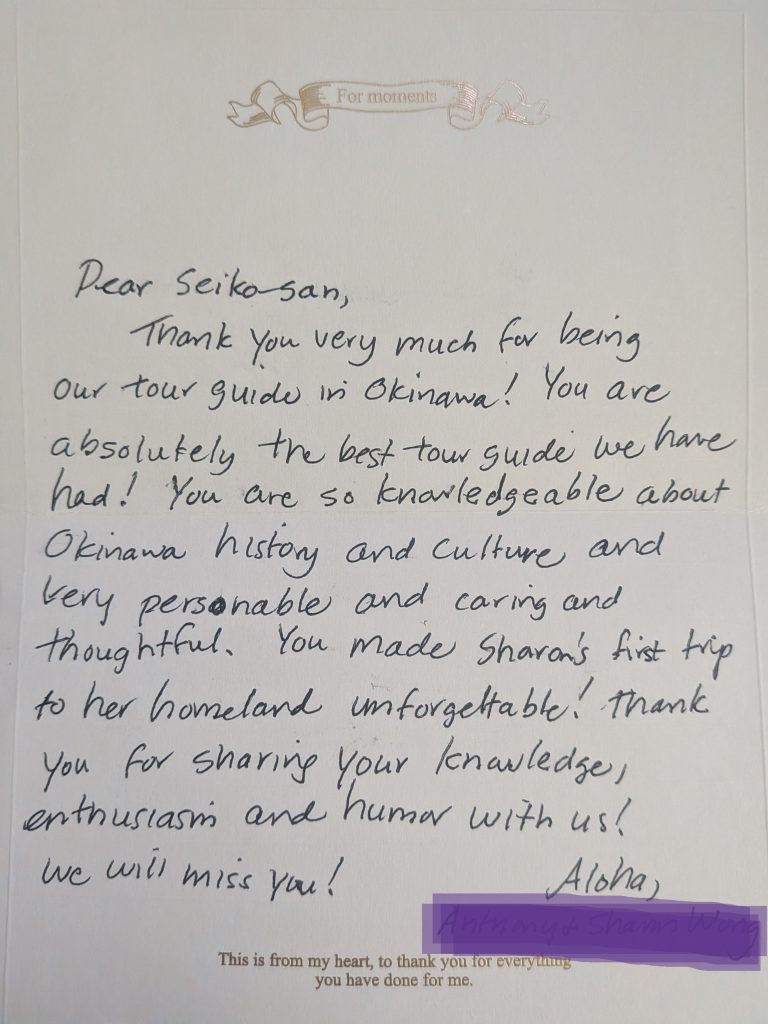 For moments
Dear Seiko-san,
Thank you very much for being
our tour guide in Okinawa! You are
absolutely the best tour guide we have
had! You are so knowledgeable about
Okinawa history and culture and
very personable and caring and
thoughtful. You made Sharon's first trip
to her homeland unforgettable! Thank
you for sharing your knowledge,
enthusiasm and humor with us!
We will miss you!
Aloha,
This is from my heart, to thank you for everything
you have done for me.